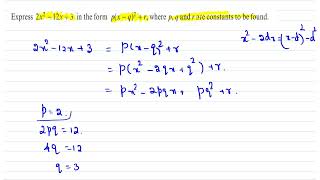 Express 2x² − 12x + 3 in the form p(x − q)² + r, where p, q and r are constants to be found.
x² − 2dx = (x−d)² − d²
2x² − 12x + 3 = p(x − q)² + r
= p(x² − 2qx + q²) + r.
= px² − 2pqx + pq² + r.
p = 2.
2pq = 12.
4q = 12
q = 3